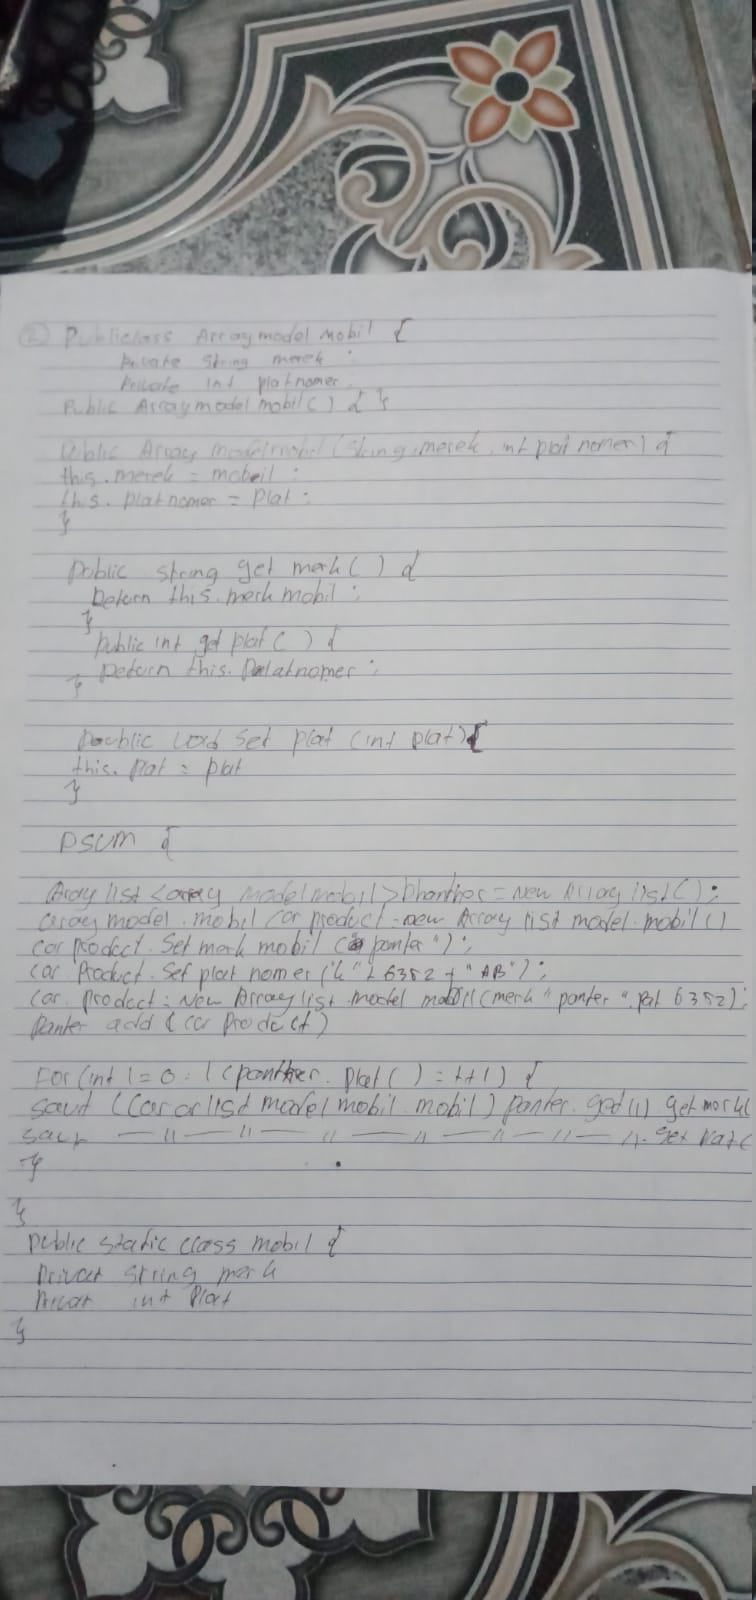 2) Publiclass Arraymodel mobil {
private string merek ;
Private int platnomer
Public Arraymodel mobil() { }
Public Array modelmobil (String merek, int plat nomer) {
this.merek = mobeil ;
this. platnomer = plat ;
}
Public string get merk ( ) {
Return this. merk mobil ;
}
public int get plat ( ) {
Return this. Palatnomer ;
}
Poublic void set plat (int plat) {
this. Plat = plat
}
PSUM {
Array list <array model mobil> phanther = New Array list ( ) ;
array model . mobil car product = new Array list model. mobil ()
car product . Set merk mobil ( "panter " ) ;
car Product . Set plat nomer ( "k" + 6352 + "AB" ) ;
car . product = New Array list model mobil (merk "panter ". Pat 6352) ;
Panter add ( car Product )
For (int i = 0 : i < panther . plat ( ) = ++i ) {
Sout ((car arlist model mobil . mobil ) panter . get (i) get merk(
Sout — 11 — 11 — 11 — 11 — 11 — 11 — 11 .
}
}
public static class mobil {
Privat string merk
Privat int Plat
}